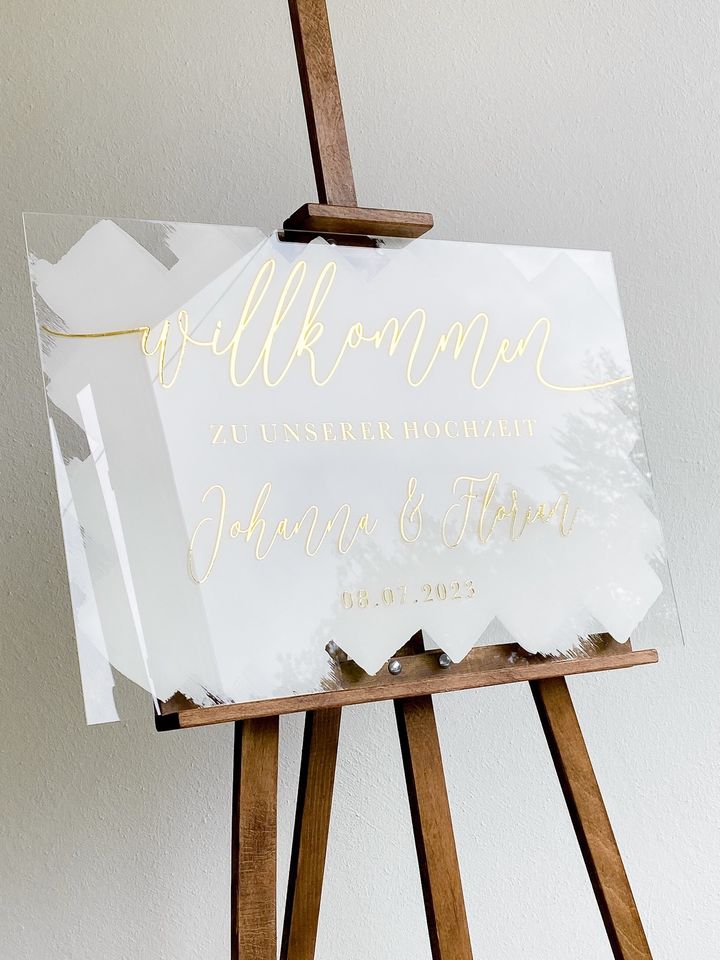 willkommen
ZU UNSERER HOCHZEIT
Johanna & Florian
08.07.2023